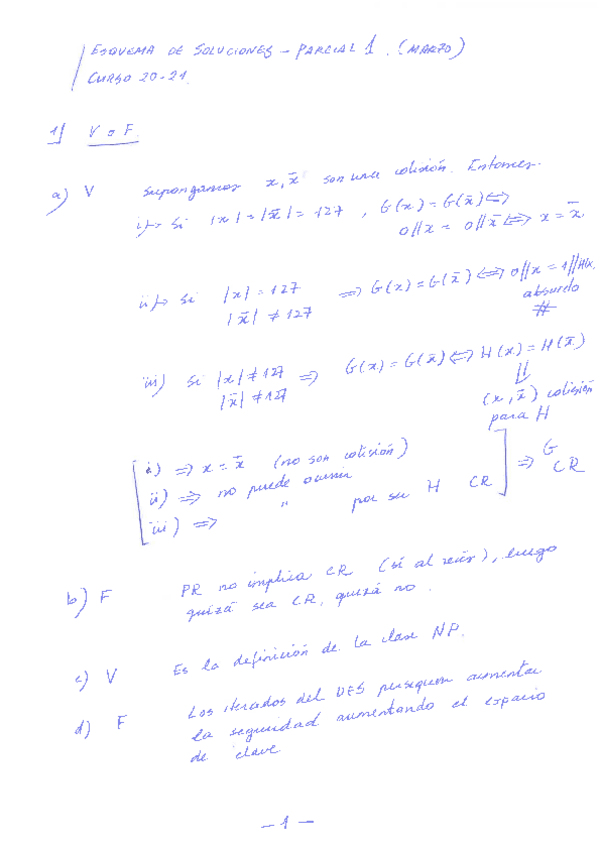 ESQUEMA DE SOLUCIONES - PARCIAL 1. (MARZO)
CURSO 20-21.
1) V o F.
a) V Supongamos x, x̄ son una colisión. Entonces.
i) → Si |x| = |x̄| = 127, G(x) = G(x̄) ⟺
0||x = 0||x̄ ⟺ x = x̄.
ii) → Si |x| = 127 ⟹ G(x) = G(x̄) ⟺ 0||x = 1||H(x,
|x̄| ≠ 127 absurdo
#
iii) Si |x| ≠ 127 ⟹ G(x) = G(x̄) ⟺ H(x) = H(x̄)
|x̄| ≠ 127 ⇓
(x, x̄) colisión
para H
i) ⟹ x = x̄ (no son colisión)
ii) ⟹ no puede ocurrir ⟹ G CR
iii) ⟹ " por ser H CR
b) F PR no implica CR (sí al revés), luego
quizá sea CR, quizá no.
c) V Es la definición de la clase NP.
d) F Los iterados del DES persiguen aumentar
la seguridad aumentando el espacio
de clave
- 1 -